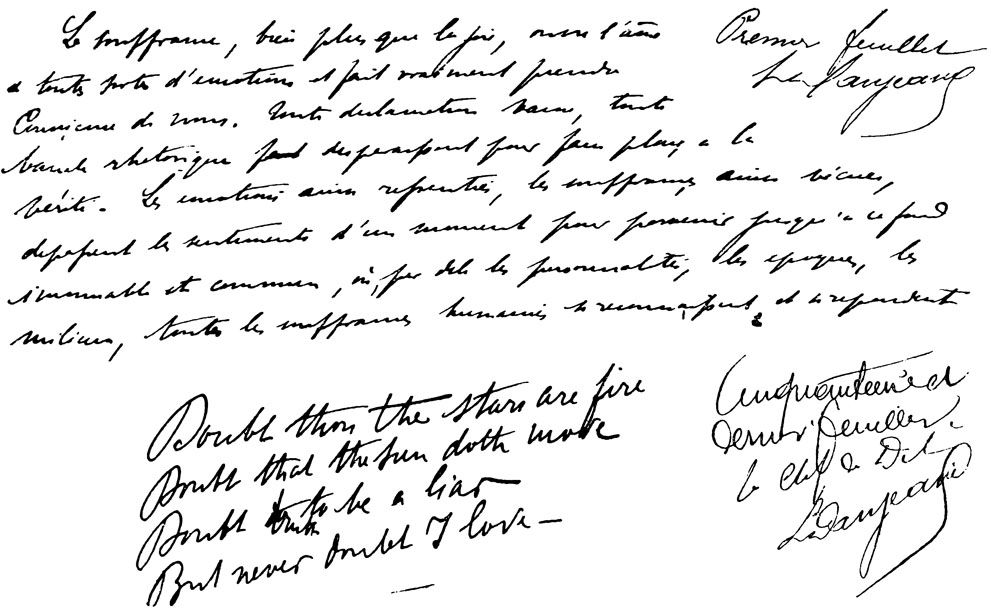 La souffrance, bien plus que la joie, ouvre l'âme
à toutes sortes d'emotions et fait vraiment prendre
Conscience de nous. Toute declamation vaine, toute
banale rhetorique disparaissent pour faire place à la
vérité. Les emotions ainsi ressenties, les souffrances ainsi vécues,
depassent les sentiments d'un moment pour parvenir jusqu'à ce fond
immuable et commun, où, par delà les personnalités, les epoques, les
milieux, toutes les souffrances humaines se reconnaissent et se repondent
Premier feuillet
Doubt thou the stars are fire
Doubt that the sun doth move
Doubt truth to be a liar
But never doubt I love —
Cinquantième et
dernier feuillet.